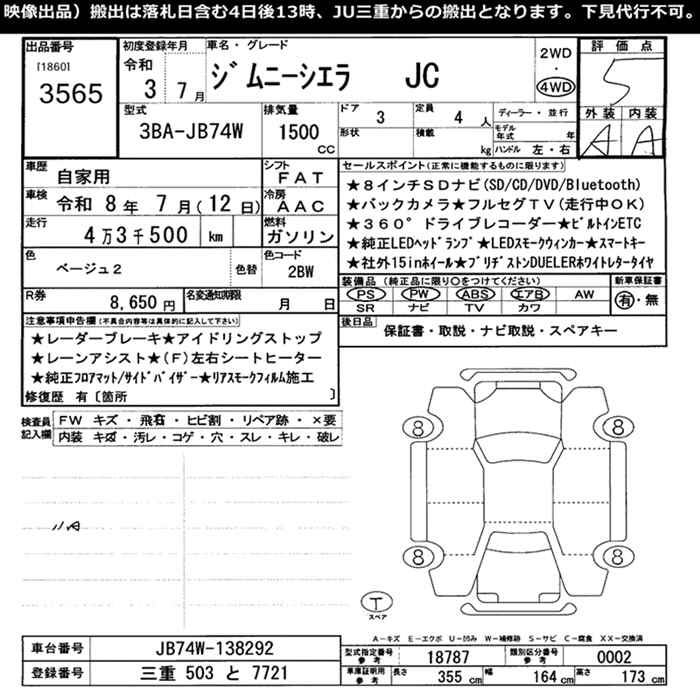 映像出品）搬出は落札日含む4日後13時、JU三重からの搬出となります。下見代行不可。
出品番号
[1860]
3565
初度登録年月
令和
3 7 月
車名・グレード
ジムニーシエラ JC
2WD
・
4WD
評価点
5
外装 内装
A A
型式
3BA-JB74W
排気量
1500
CC
ドア
3
定員
4 人
形状
積載
kg
ディーラー・並行
モデル年式 年
ハンドル 左・右
車歴
自家用
シフト
FAT
車検
令和 8 年 7 月 (12 日)
冷房
AAC
走行
4万3千500 km
燃料
ガソリン
色
ベージュ2
色替
色コード
2BW
R券
8,650 円
名変通知期限
月 日
セールスポイント(正常に機能するものに限ります)
★8インチSDナビ(SD/CD/DVD/Bluetooth)
★バックカメラ★フルセグTV(走行中OK)
★360°ドライブレコーダー★ビルトインETC
★純正LEDヘッドランプ★LEDスモークウィンカー★スマートキー
★社外15inホイール★ブリヂストンDUELERホワイトレタータイヤ
装備品 (純正品に限り○をつけてください)
PS PW ABS エアB AW
SR ナビ TV カワ
新車保証書
有・無
後日品
保証書・取説・ナビ取説・スペアキー
注意事項申告欄(不具合内容等は具体的に記入して下さい)
★レーダーブレーキ★アイドリングストップ
★レーンアシスト★(F)左右シートヒーター
★純正フロアマット/サイドバイザー★リアスモークフィルム施工
修復歴 有〔箇所 〕
検査員記入欄
FW キズ・飛石・ヒビ割・リペア跡・×要
内装 キズ・汚レ・コゲ・穴・スレ・キレ・破レ
8
8
8
8
T
スペア
A－キズ E－エクボ U－凹み W－補修跡 S－サビ C－腐食 XX－交換済
車台番号
JB74W-138292
登録番号
三重 503 と 7721
型式指定番号
参考
18787
類別区分番号
参考
0002
車庫証明用
参考
長さ
355 cm
幅
164 cm
高さ
173 cm